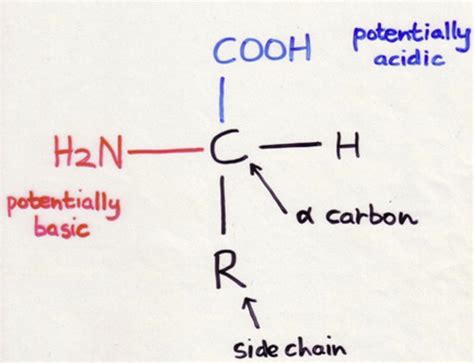 COOH
potentially
acidic
H2N
C
H
potentially
basic
α carbon
R
side chain